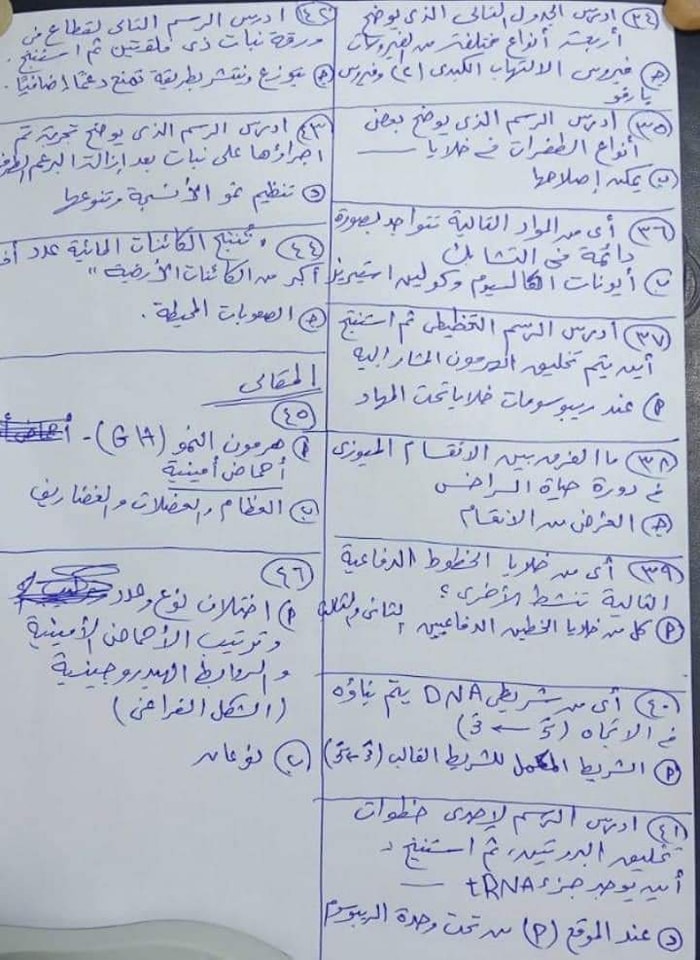 ٣٤ ادرس الجدول التالى الذى يوضح
أربعة أنواع مختلفة من الفيروسات
ج فيروس الالتهاب الكبدى (C) وفيروس
بارفو
٣٥ ادرس الرسم الذى يوضح بعض
أنواع الطفرات فى خلايا ـــ
ب يمكن إصلاحها
٣٦ أى من المواد التالية تتواجد بصورة
دائمة فى التشابك
ب أيونات الكالسيوم وكولين استيريز
٣٧ ادرس الرسم التخطيطى ثم استنتج
أين يتم تخليق الهرمون المشار إليه
P عند ريبوسومات خلايا تحت المهاد
٣٨ ما الفرق بين الانقسام الميوزى
فى دورة حياة السراخس
ج الغرض من الانقسام
٣٩ أى من خلايا الخطوط الدفاعية
التالية تنشط الأخرى؟
P كل من خلايا الخطين الدفاعيين الثانى والثالث
٤٠ أى من شريطى DNA يتم بناؤه
فى الاتجاه (5 ← 3)
P الشريط المكمل للشريط القالب (3 ← 5)
٤١ ادرس الرسم لإحدى خطوات
تخليق البروتين، ثم استنتج
أين يوجد جزء tRNA ـــ
د عند الموقع (P) من تحت وحدة الريبوسوم
٤٢ ادرس الرسم التالى لقطاع فى
ورقة نبات ذى فلقتين ثم استنتج.
ج يتوزع وينتشر بطريقة تمنح دعمًا إضافيًا.
٤٣ ادرس الرسم الذى يوضح تجربة تم
اجراؤها على نبات بعد إزالة البرعم
د تنظيم نمو الأنسجة وتنوعها
٤٤ "تنتج الكائنات المائية عدد
أكبر من الكائنات الأرضية"
ج الصعوبات المحيطة.
المقالى
٤٥
P هرمون النمو (GH) -
أحماض أمينية
ب العظام والعضلات والغضاريف
٤٦
P اختلاف نوع وعدد
وترتيب الأحماض الأمينية
والروابط الهيدروجينية
(الشكل الفراغى)
ب نوعان